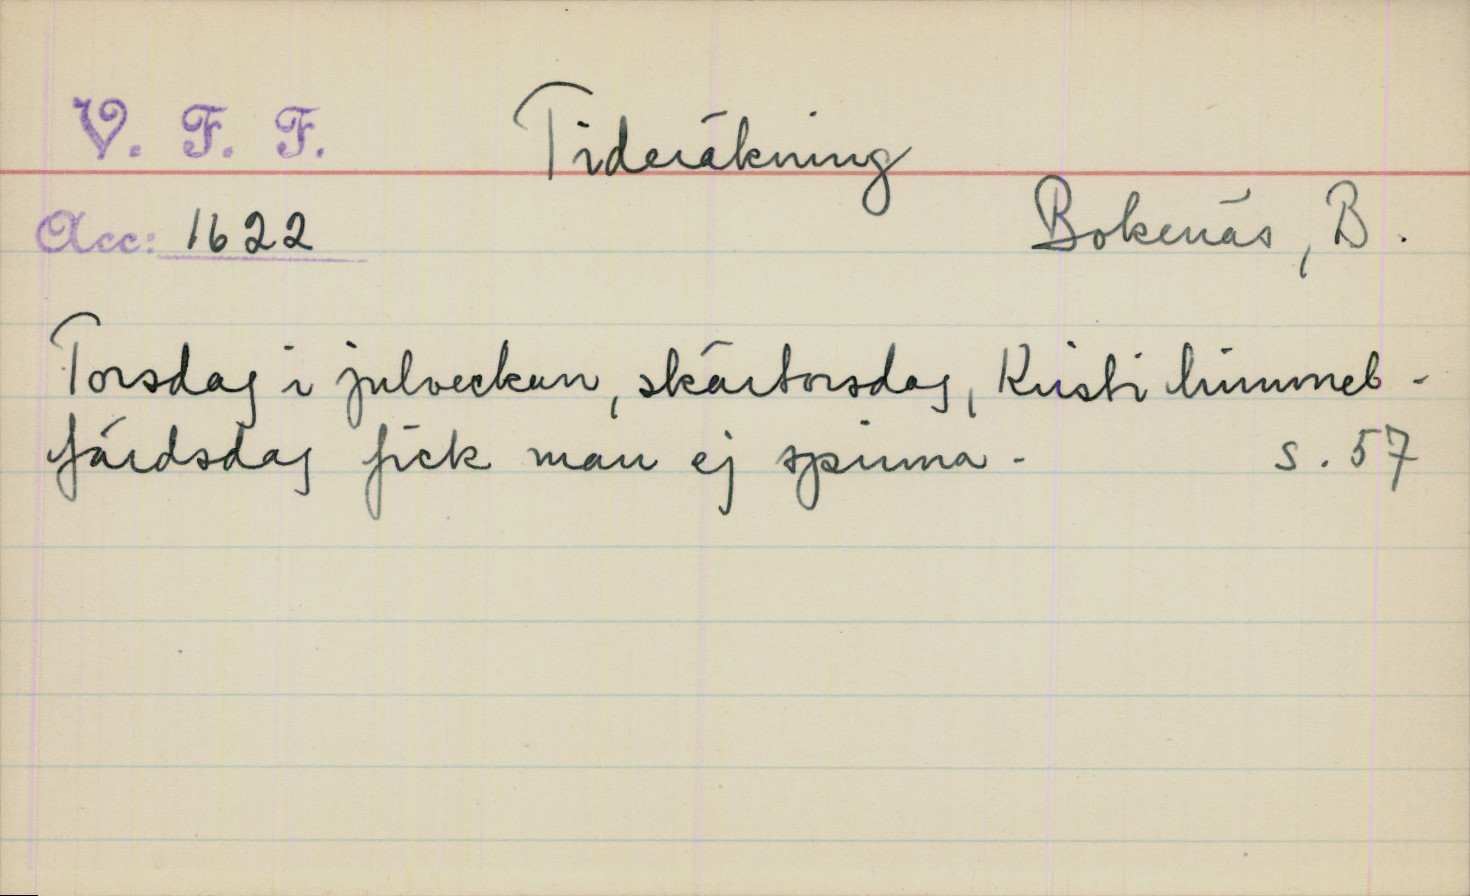 V. F. F. Tideräkning
Acc: 1622 Bokenäs, B.
Torsdag i julveckan, skärtorsdag, Kristi himmels-
färdsdag fick man ej spinna. s. 57